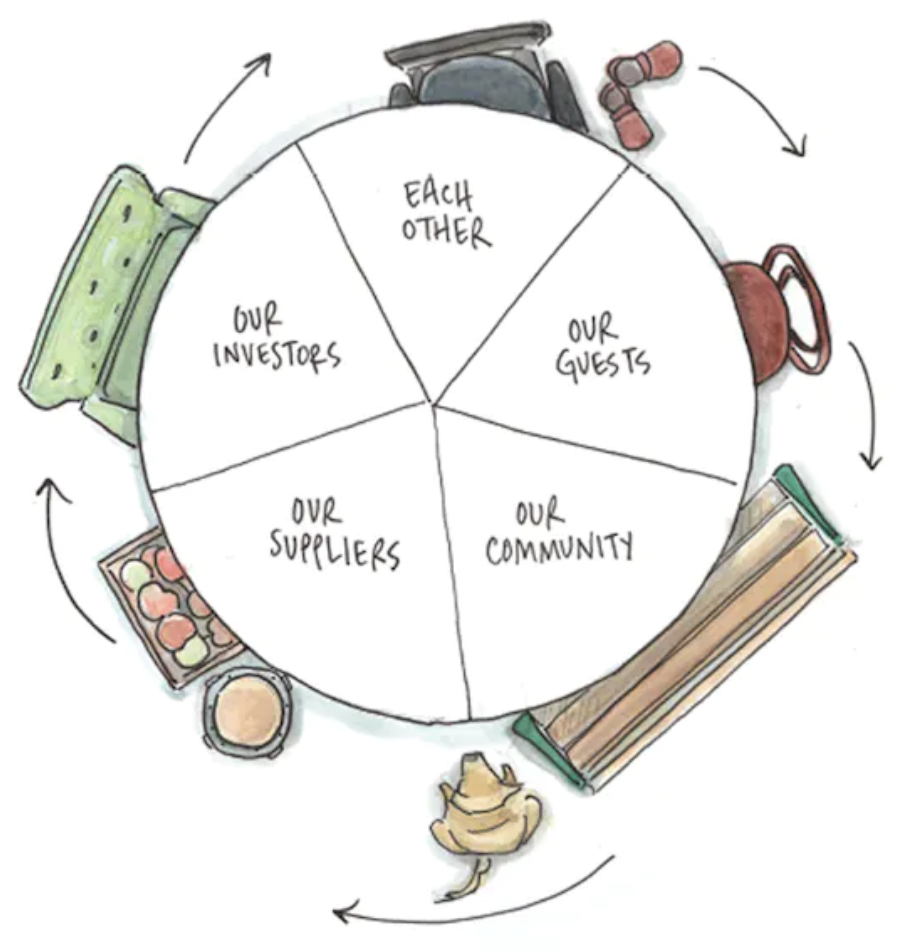 EACH
OTHER
OUR
GUESTS
OUR
COMMUNITY
OUR
SUPPLIERS
OUR
INVESTORS